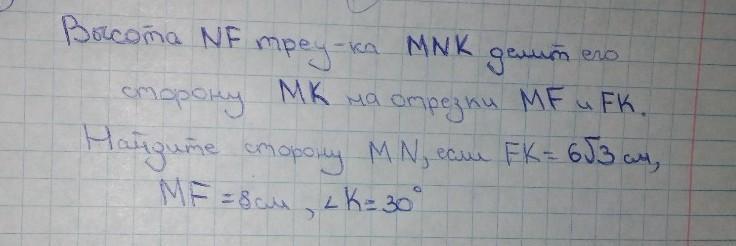 Высота NF треу-ка MNK делит его
сторону MK на отрезки MF и FK.
Найдите сторону MN, если FK = 6√3 см,
MF = 8 см, ∠K = 30°